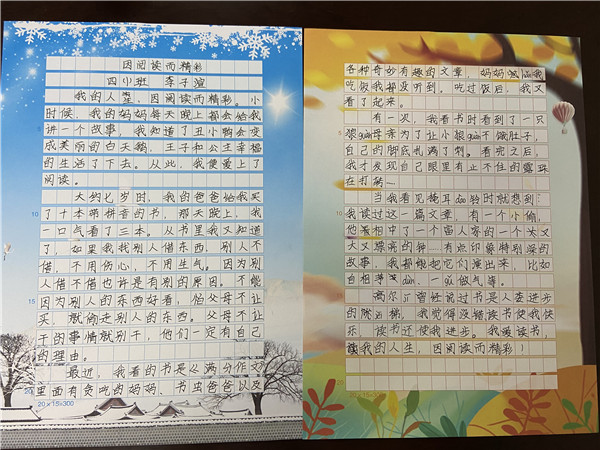 因阅读而精彩
四(1)班 李子渲
我的人生,因阅读而精彩。小
时候,我的妈妈每天晚上都会给我
讲一个故事,我知道了丑小鸭会变
成美丽的白天鹅,王子和公主幸福
的生活了下去。从此,我便爱上了
阅读。
大约七岁时,我的爸爸给我买
了十本带拼音的书,那天晚上,我
一口气看了三本。从书里我又知道
了,如果我找别人借东西,别人不
借,不用伤心,不用生气。因为别
人借不借也许是有别的原因,不能
因为别人的东西好看,但父母不让
买,就偷走别人的东西。父母不让
干的事情就别干,他们一定有自己
的理由。
最近,我看的书是《满分作文》
里面有贪吃的妈妈、书虫爸爸以及
20×15=300
各种奇妙有趣的文章,妈妈喊我
吃饭我都没听到。吃过饭后,我又
看了起来。
有一次,我看书时看到了一只
狼母亲为了让小狼不饿肚子,
自己的脚底扎满了刺。看完之后,
我才发现自己眼里有止不住的露珠
在打转。
当我看见掩耳盗铃时就想到
我读过这一篇文章,有一个小偷,
他看相中了一个富人家的一个大又
大又漂亮的钟。有点印象特别深的
故事,我都想把它们演出来,比如
自相矛盾dùn、gǔ做气等。
高尔基曾经说过书是人类进步
的阶梯,我觉得没错读书使我快
乐,读书还使我进步,我爱读书,
我的人生,因阅读而精彩!